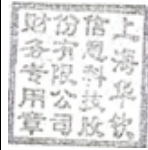 上海华钦
信息科技股
份有限公司
财务专用章